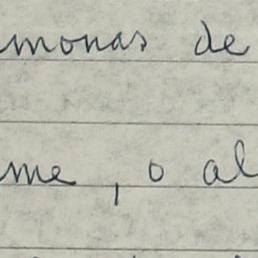 monas de
me, o al